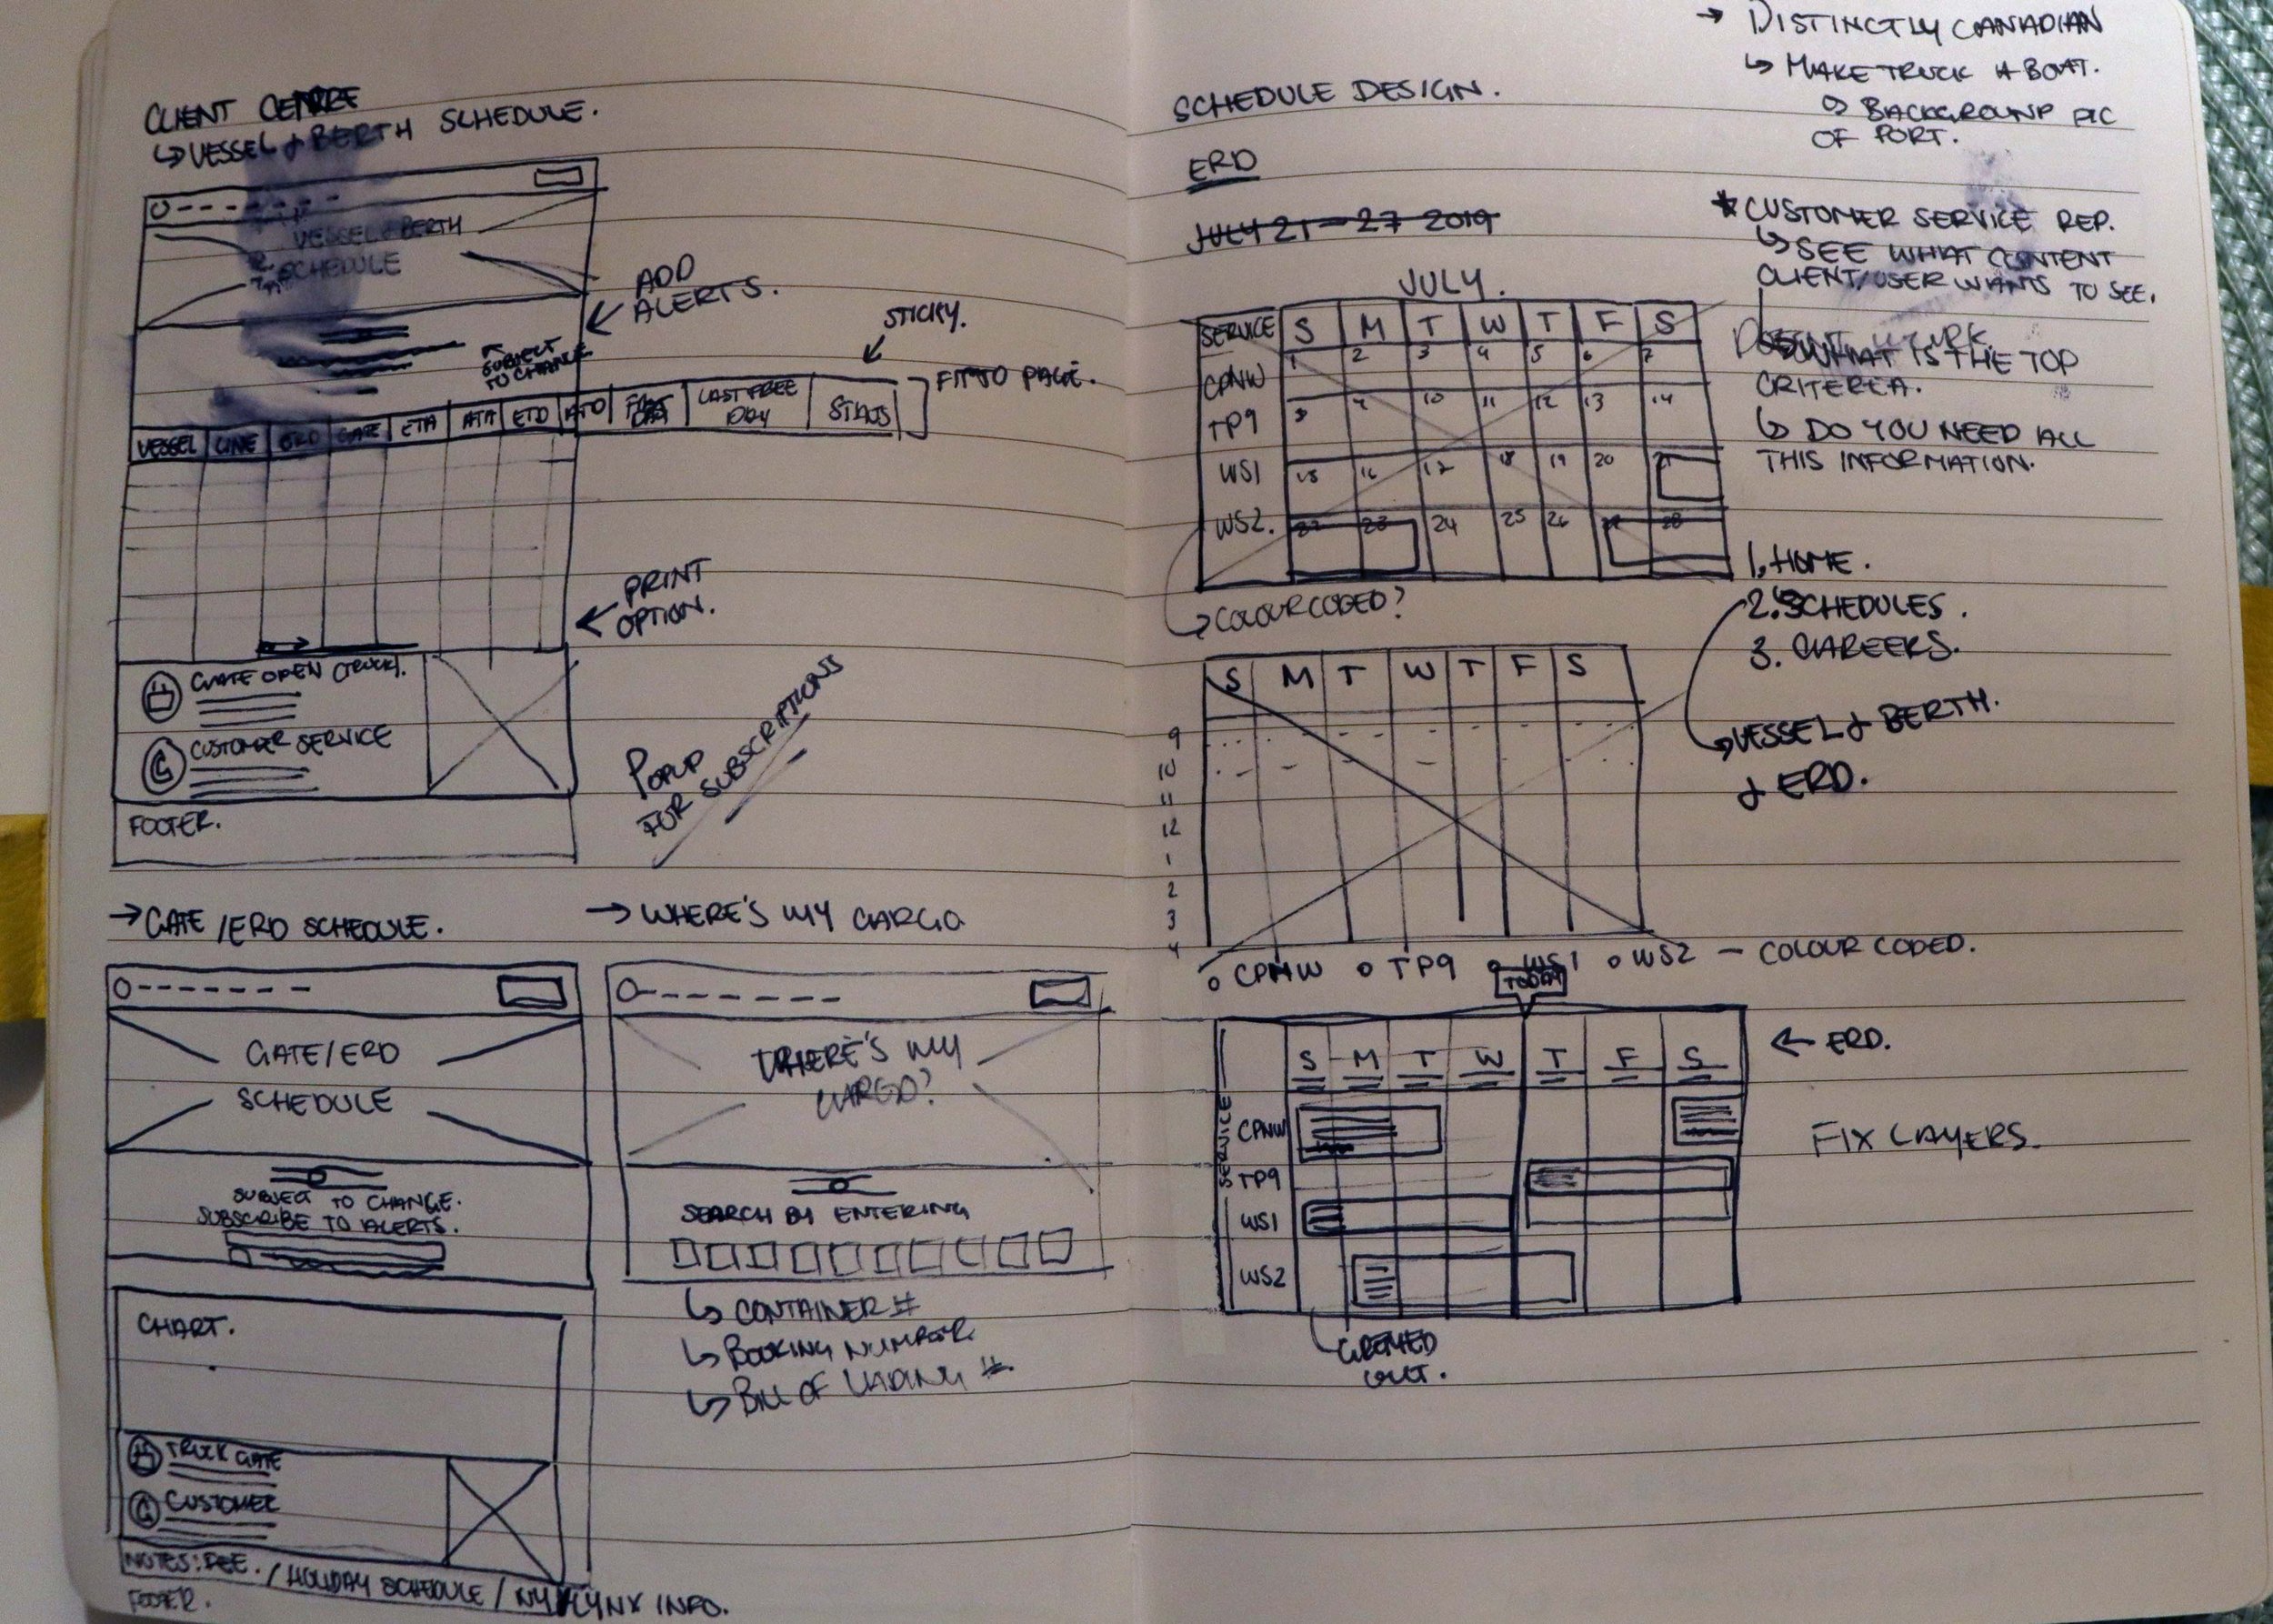 CLIENT CENTRE
↳ VESSEL & BERTH SCHEDULE.
VESSEL & BERTH
SCHEDULE
ADD
ALERTS.
SUBJECT
TO CHANGE
STICKY.
FIT TO PAGE.
VESSEL LINE ERD GATE ETA ATA ETD ATD FIRST LAST FREE DAY STATUS
PRINT
OPTION.
GATE OPEN (TRUCK).
CUSTOMER SERVICE
FOOTER.
POPUP
FOR SUBSCRIPTIONS
→ GATE / ERD SCHEDULE.
GATE/ERD
SCHEDULE
SUBJECT TO CHANGE.
SUBSCRIBE TO ALERTS.
CHART.
TRUCK GATE
CUSTOMER
NOTES: FEE. / HOLIDAY SCHEDULE / LYNX INFO.
FOOTER.
→ WHERE'S MY CARGO
WHERE'S MY
CARGO?
SEARCH BY ENTERING
↳ CONTAINER #
↳ BOOKING NUMBER
↳ BILL OF LADING #
SCHEDULE DESIGN.
ERD
JULY 21 - 27 2019
JULY.
SERVICE S M T W T F S
CPNW 1 2 3 4 5 6 7
TP9 8 9 10 11 12 13 14
WS1 15 16 17 18 19 20 21
WS2. 22 23 24 25 26 27 28
↳ COLOUR CODED?
S M T W T F S
9
10
11
12
1
2
3
4
○ CPNW ○ TP9 ○ WS1 ○ WS2 - COLOUR CODED.
TODAY
S M T W T F S
SERVICE
CPNW
TP9
WS1
WS2
GREYED
OUT.
← ERD.
FIX LAYERS.
→ DISTINCTLY CANADIAN
↳ MAKE TRUCK A BOAT.
BACKGROUND PIC
OF PORT.
* CUSTOMER SERVICE REP.
↳ SEE WHAT CONTENT
CLIENT/USER WANTS TO SEE.
WHAT IS THE TOP
CRITEREA.
↳ DO YOU NEED ALL
THIS INFORMATION.
1. HOME.
2. SCHEDULES.
3. CAREERS.
↳ VESSEL & BERTH.
& ERD.